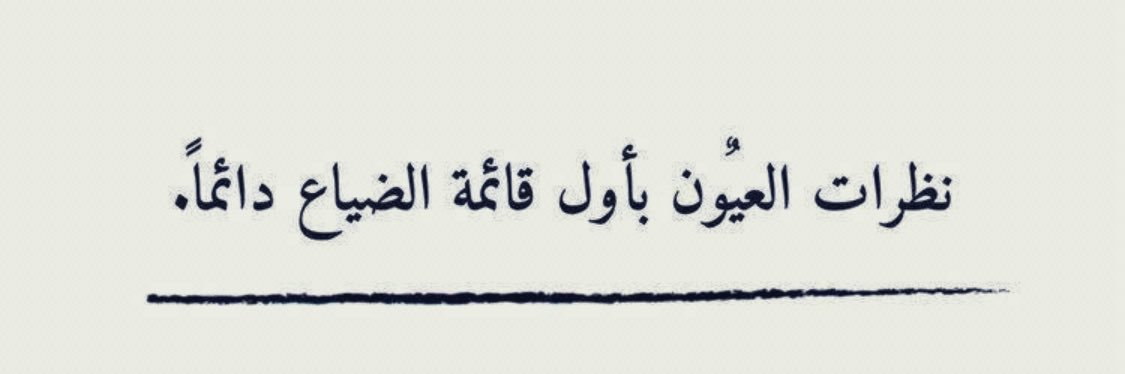 نظرات العيٌون بأول قائمة الضياع دائماً.